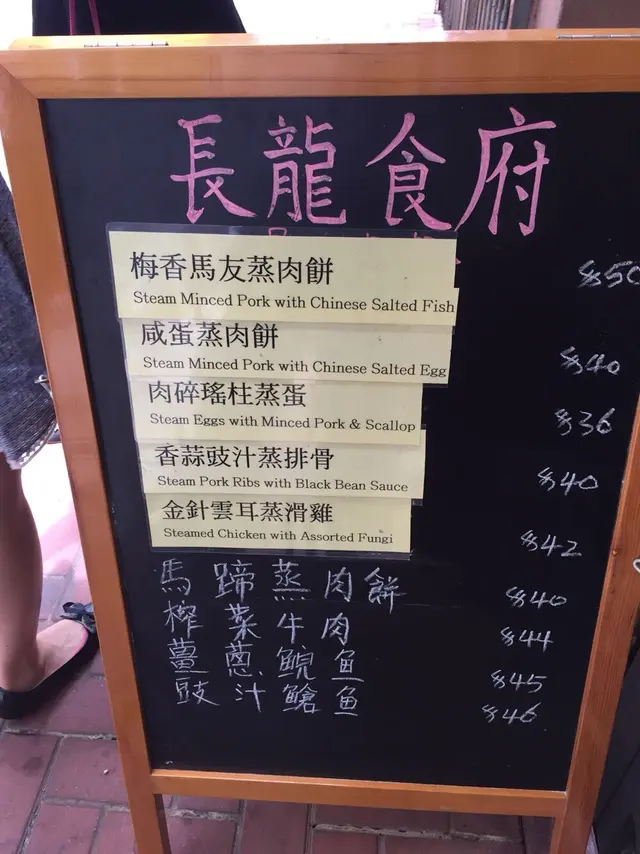 長龍食府
梅香馬友蒸肉餅 $50
Steam Minced Pork with Chinese Salted Fish
咸蛋蒸肉餅 $40
Steam Minced Pork with Chinese Salted Egg
肉碎瑤柱蒸蛋 $36
Steam Eggs with Minced Pork & Scallop
香蒜豉汁蒸排骨 $40
Steam Pork Ribs with Black Bean Sauce
金針雲耳蒸滑雞 $42
Steamed Chicken with Assorted Fungi
馬蹄蒸肉餅 $40
榨菜牛肉 $44
薑蔥鯇魚 $45
豉汁鱠魚 $46